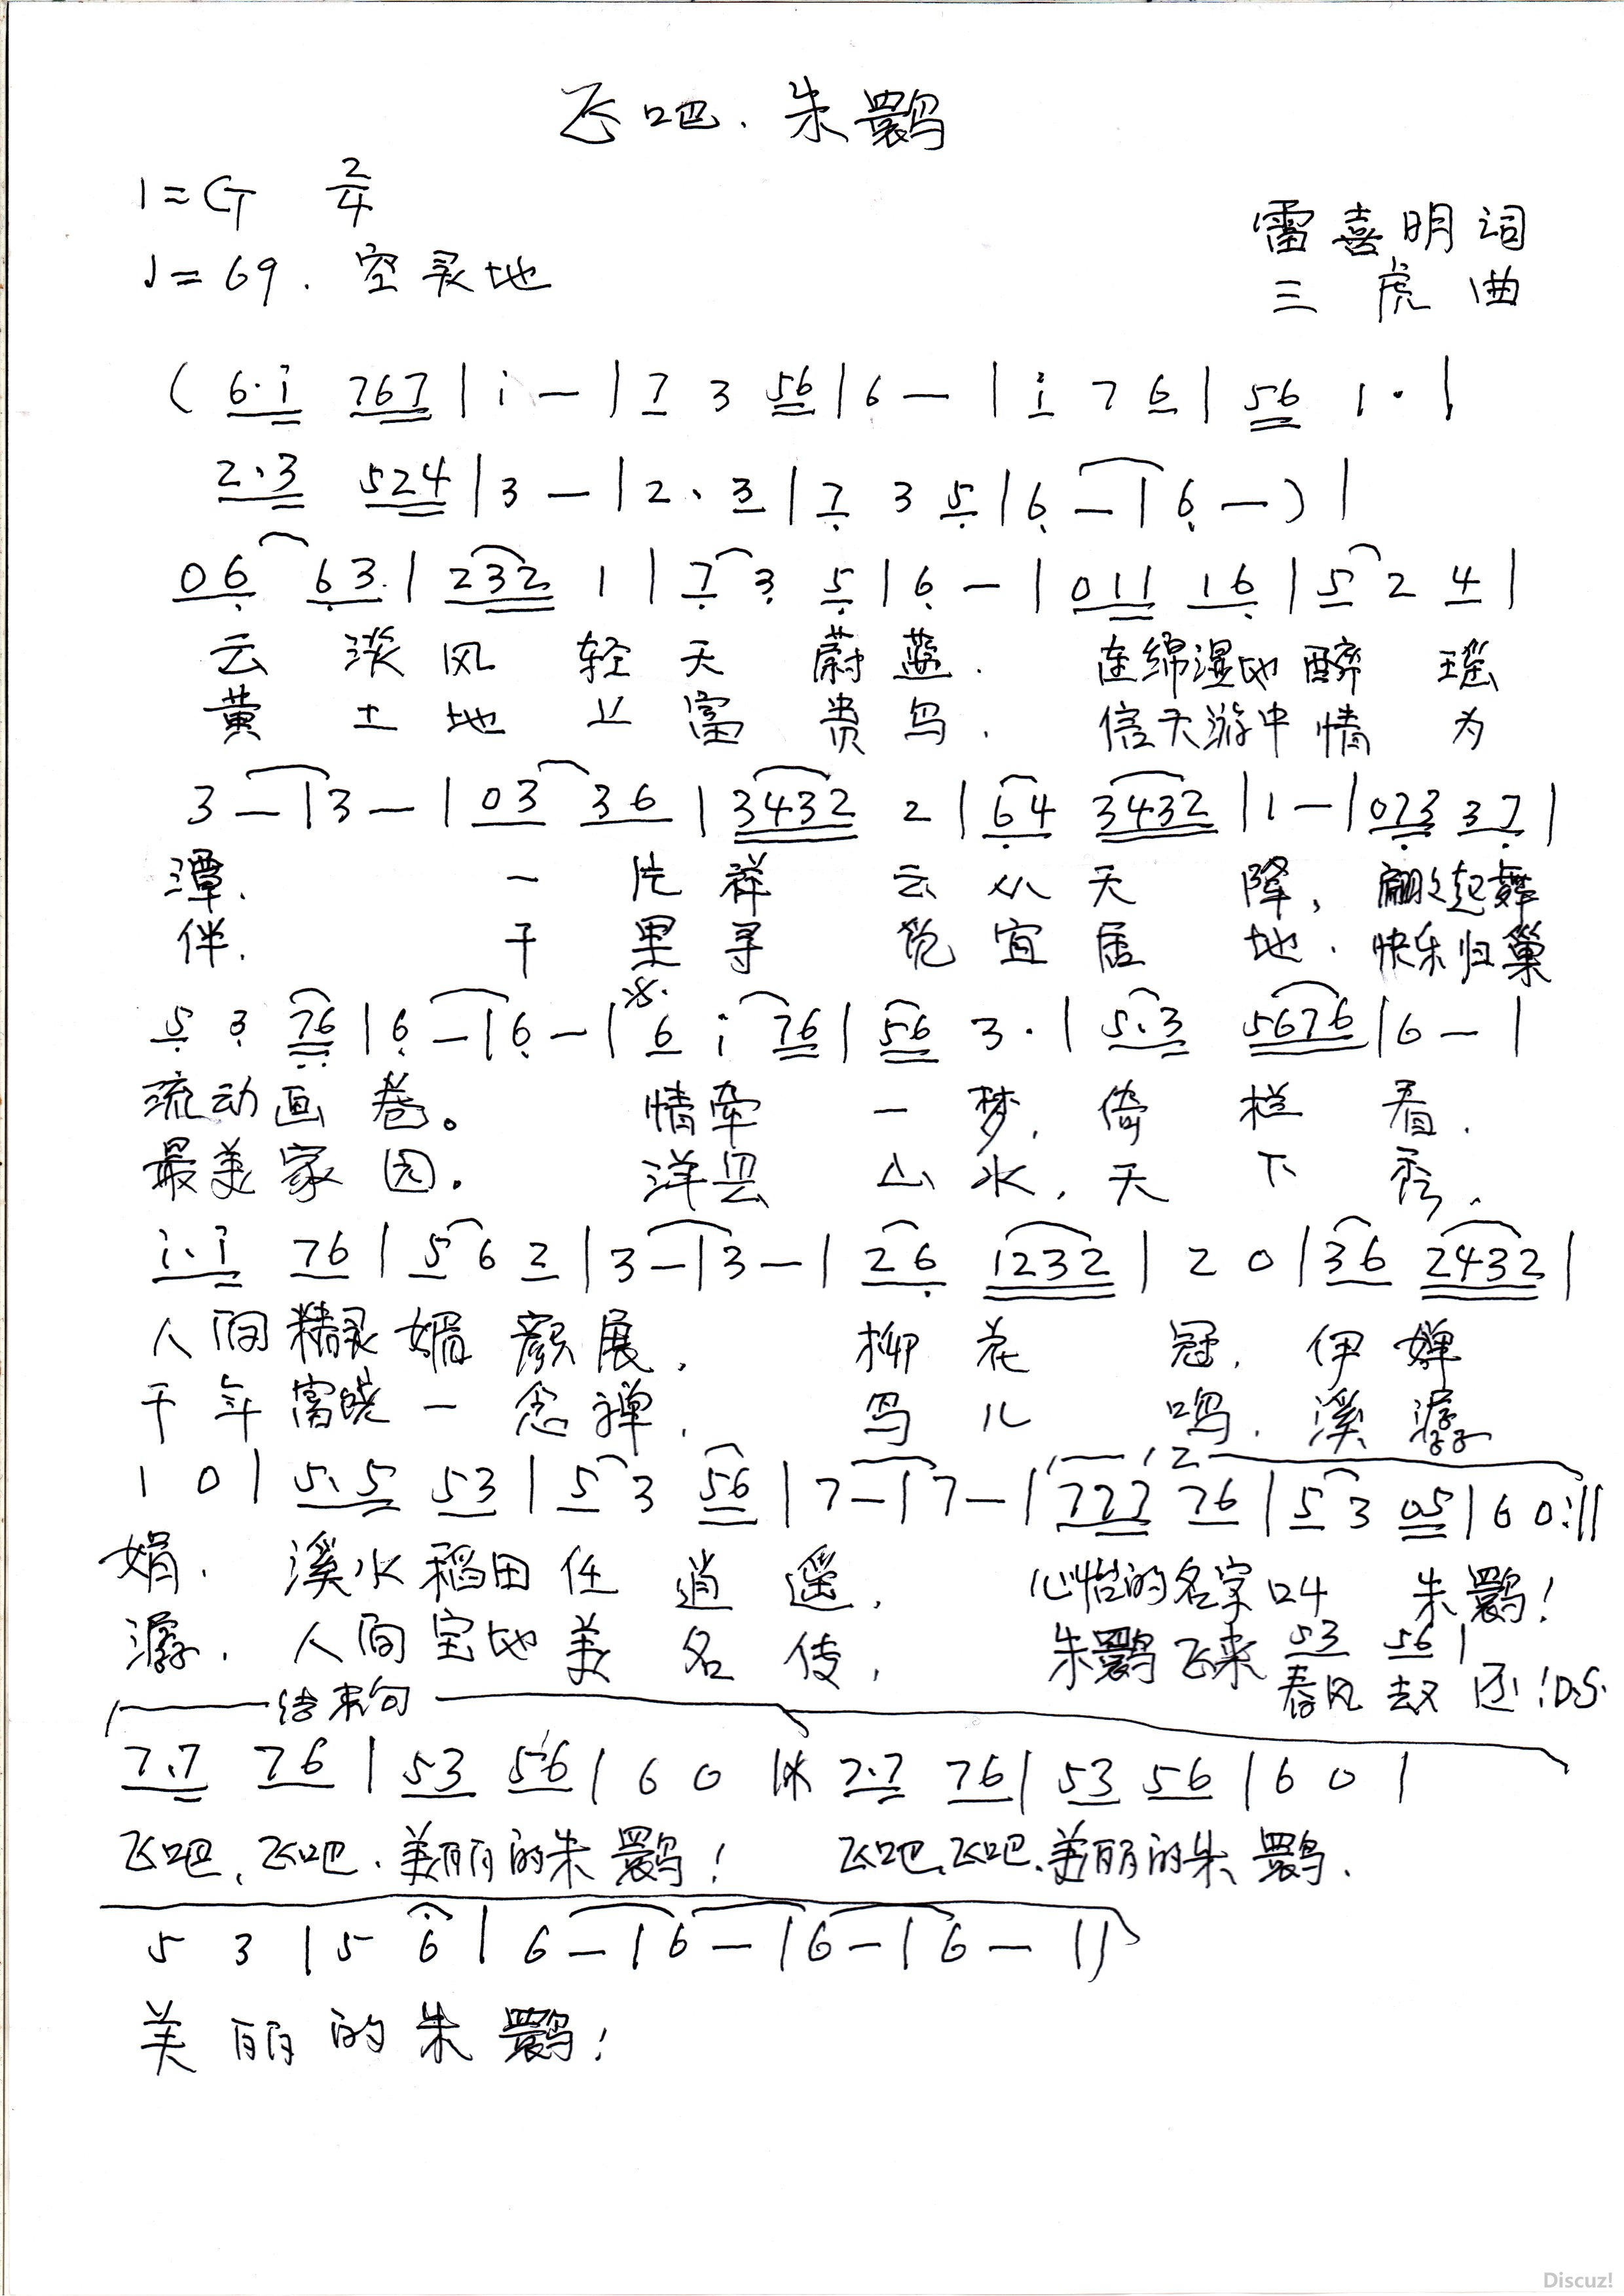 飞吧·朱鹮
1=G 2/4
♩=69. 空灵地
雷喜明词
三虎曲
( 6·i 767 | i — | 7 3 56 | 6 — | i 7 6 | 56 1 · |
2·3 524 | 3 — | 2 · 3 | 7 3 5 | 6 — | 6 — ) |
06 63 | 232 1 | 7 3 5 | 6 — | 011 16 | 5 2 4 |
云淡风轻天蔚蓝. 连绵湿地醉瑶
黄土地上富贵鸟. 信天游中情为
3 — | 3 — | 03 36 | 3432 2 | 64 3432 | 1 — | 073 37 |
潭. 一片祥云从天降, 翩々起舞
伴. 千里寻觅宜居地. 快乐归巢
5 3 76 | 6 — | 6 — | 6 i 76 | 56 3 · | 5·3 5676 | 6 — |
流动画卷。 情牵一梦, 倚栏看.
最美家园. 洋县山水, 天下秀.
i·i 76 | 5 6 2 | 3 — | 3 — | 26 1232 | 2 0 | 36 2432 |
人间精灵媚颜展. 柳花冠, 伊婵
千年富晓一念禅. 鸟儿鸣, 溪潺
1 0 | 5·5 53 | 5 3 56 | 7 — | 7 — | 1,2 777 76 | 5 3 05 | 6 0 :||
娟. 溪水稻田任逍遥, 心怡的名字叫 朱鹮!
潺. 人间宝地美名传, 朱鹮飞来 53 56 |
春风去又还! D.S.
结束句
7·7 76 | 53 56 | 6 0 | 7·7 76 | 53 56 | 6 0 |
飞吧, 飞吧. 美丽的朱鹮! 飞吧, 飞吧, 美丽的朱鹮.
5 3 | 5 6 | 6 — | 6 — | 6 — | 6 — ||
美丽的朱鹮!
Discuz!